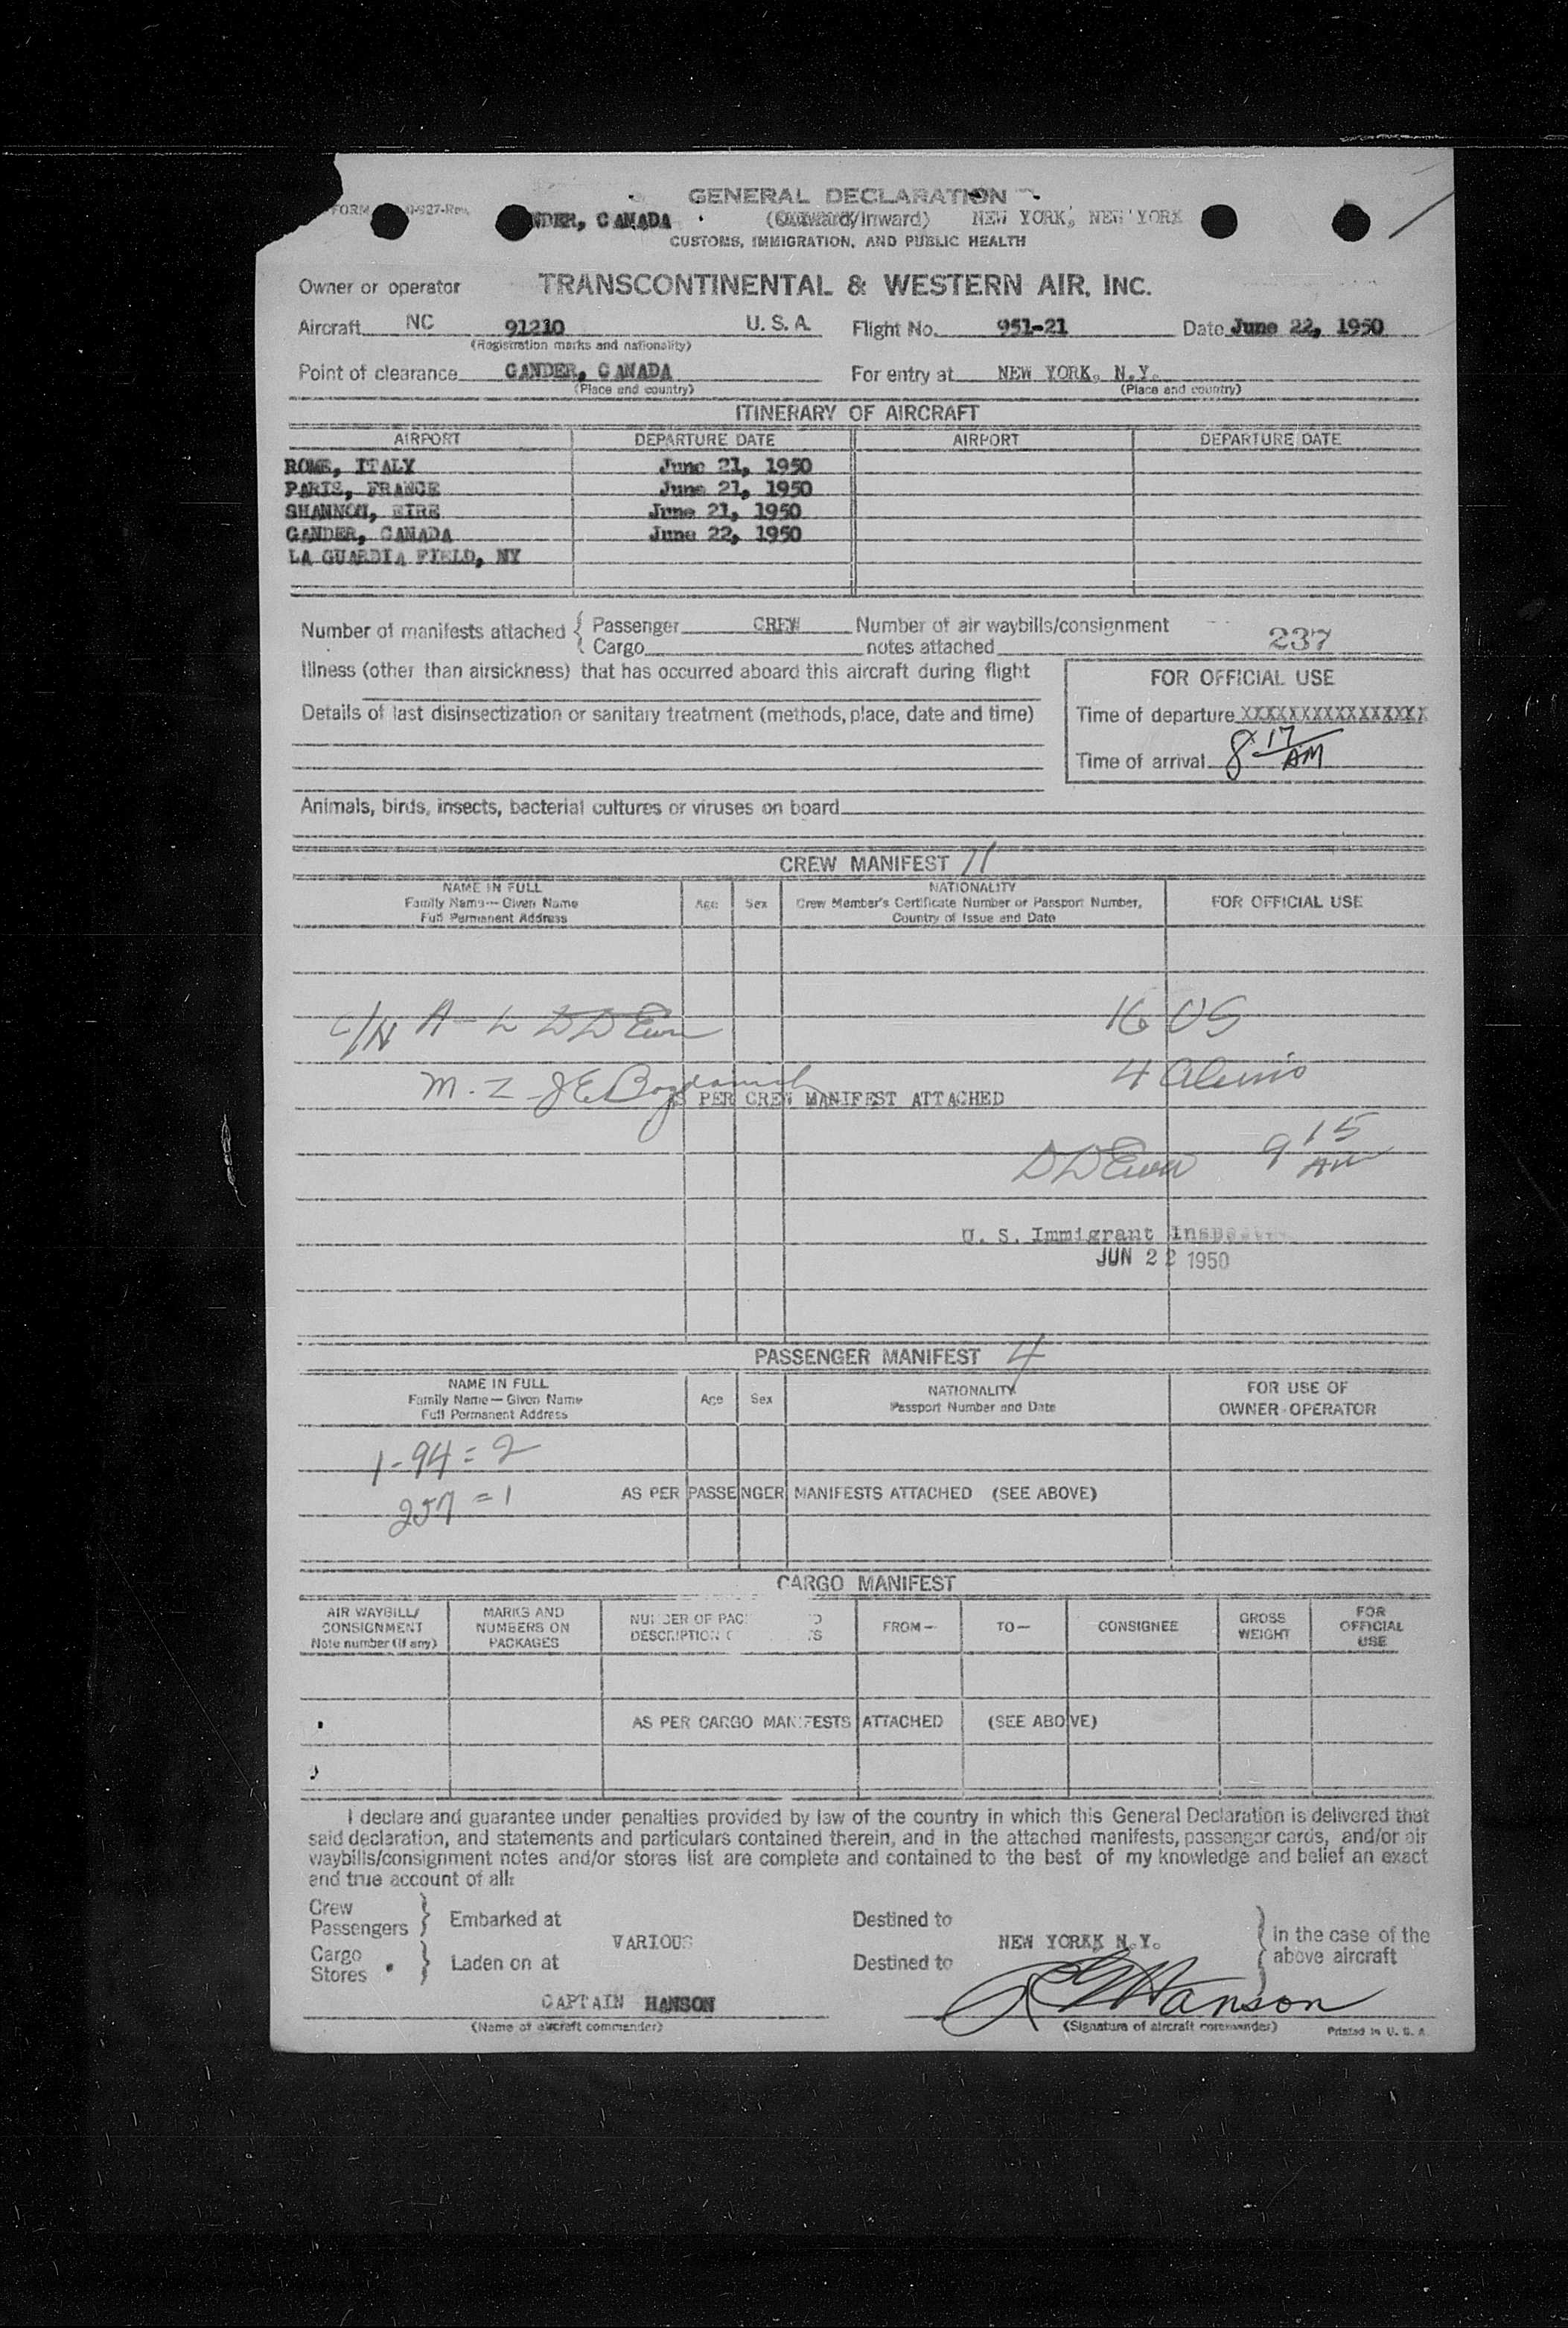 FORM -927-Rev.
GENERAL DECLARATION
NDER, CANADA (Outward/Inward) NEW YORK, NEW YORK
CUSTOMS, IMMIGRATION, AND PUBLIC HEALTH
Owner or operator TRANSCONTINENTAL & WESTERN AIR, INC.
Aircraft NC 91210 U. S. A. Flight No. 951-21 Date June 22, 1950
(Registration marks and nationality)
Point of clearance GANDER, CANADA For entry at NEW YORK, N.Y.
(Place and country) (Place and country)
ITINERARY OF AIRCRAFT
AIRPORT DEPARTURE DATE AIRPORT DEPARTURE DATE
ROME, ITALY June 21, 1950
PARIS, FRANCE June 21, 1950
SHANNON, EIRE June 21, 1950
GANDER, CANADA June 22, 1950
LA GUARDIA FIELD, NY
Number of manifests attached { Passenger CREW Number of air waybills/consignment
Cargo notes attached 237
Illness (other than airsickness) that has occurred aboard this aircraft during flight
FOR OFFICIAL USE
Details of last disinsectization or sanitary treatment (methods, place, date and time)
Time of departure XXXXXXXXXXXXXXXX
Time of arrival 8 17 AM
Animals, birds, insects, bacterial cultures or viruses on board
CREW MANIFEST 11
NAME IN FULL Family Name—Given Name Full Permanent Address
Age Sex
NATIONALITY Crew Member's Certificate Number or Passport Number, Country of Issue and Date
FOR OFFICIAL USE
A-L 16 US
M-Z J E Bogdanich 4 Aliens
PER CREW MANIFEST ATTACHED
9 15 AM
U. S. Immigrant Inspector
JUN 22 1950
PASSENGER MANIFEST 4
NAME IN FULL Family Name—Given Name Full Permanent Address
Age Sex
NATIONALITY Passport Number and Date
FOR USE OF OWNER-OPERATOR
1-94 = 2
257 = 1
AS PER PASSENGER MANIFESTS ATTACHED (SEE ABOVE)
CARGO MANIFEST
AIR WAYBILL/ CONSIGNMENT Note number (if any)
MARKS AND NUMBERS ON PACKAGES
NUMBER OF PAC D
DESCRIPTION O TS
FROM— TO— CONSIGNEE GROSS WEIGHT FOR OFFICIAL USE
AS PER CARGO MANIFESTS ATTACHED (SEE ABOVE)
I declare and guarantee under penalties provided by law of the country in which this General Declaration is delivered that
said declaration, and statements and particulars contained therein, and in the attached manifests, passenger cards, and/or air
waybills/consignment notes and/or stores list are complete and contained to the best of my knowledge and belief an exact
and true account of all:
Crew
Passengers } Embarked at Destined to
VARIOUS NEW YORKK N.Y. } in the case of the above aircraft
Cargo
Stores } Laden on at Destined to
CAPTAIN HANSON Hanson
(Name of aircraft commander) (Signature of aircraft commander) Printed in U. S. A.